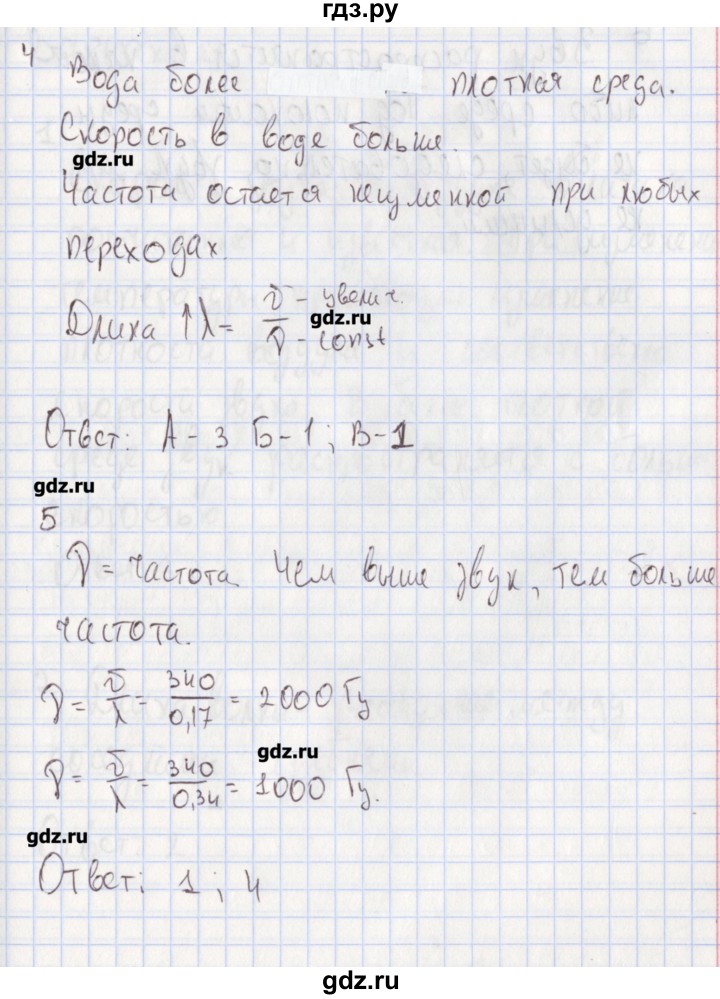 гдз.ру
4
Вода более плотная среда.
Скорость в воде больше.
gdz.ru
Частота остается неизменной при любых
переходах.
Длина ↑λ = v - увелич. / ν - const
gdz.ru
Ответ: А - 3 Б - 1; В - 1
gdz.ru
5
ν = частота. Чем выше звук, тем больше
частота.
ν = v/λ = 340/0,17 = 2000 Гц
gdz.ru
ν = v/λ = 340/0,34 = 1000 Гц.
gdz.ru
Ответ: 1; 4
gdz.ru